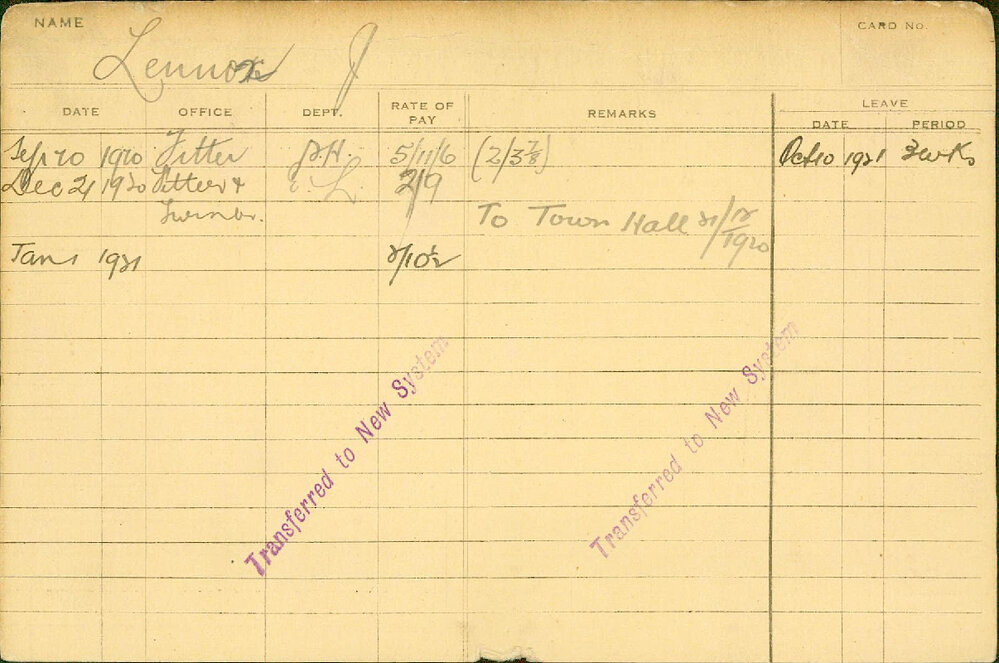 NAME
CARD No.
Lennox J
DATE OFFICE DEPT. RATE OF PAY REMARKS LEAVE
DATE PERIOD
Sep 20 1920 Fitter P.H. 5/11/6 (2/3 7/8) Oct 10 1921 3 wks
Dec 21 1920 Fitter & E L 2/9
Turner. To Town Hall 21/12/1920
Jan 1 1921 2/10½
Transferred to New System
Transferred to New System